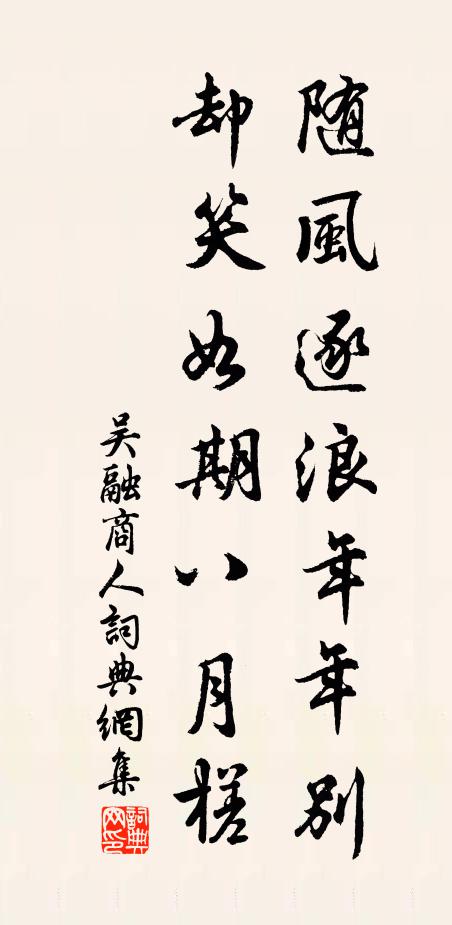 随風逐浪年年別
却笑如期八月槎
吴融商人詞典網集
詞典網印